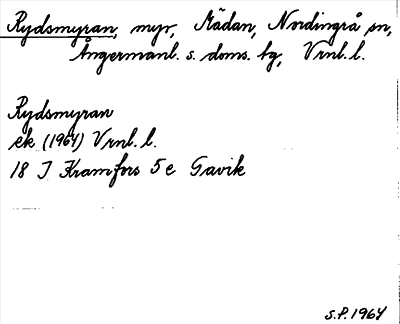 Rydsmyran, myr, Mädan, Nordingrå sn,
Ångermanl. s. doms. tg, Vrnl. l.
Rydsmyran
ek (1964) Vrnl. l.
18 J Kramfors 5 e Gavik
S.P. 1964